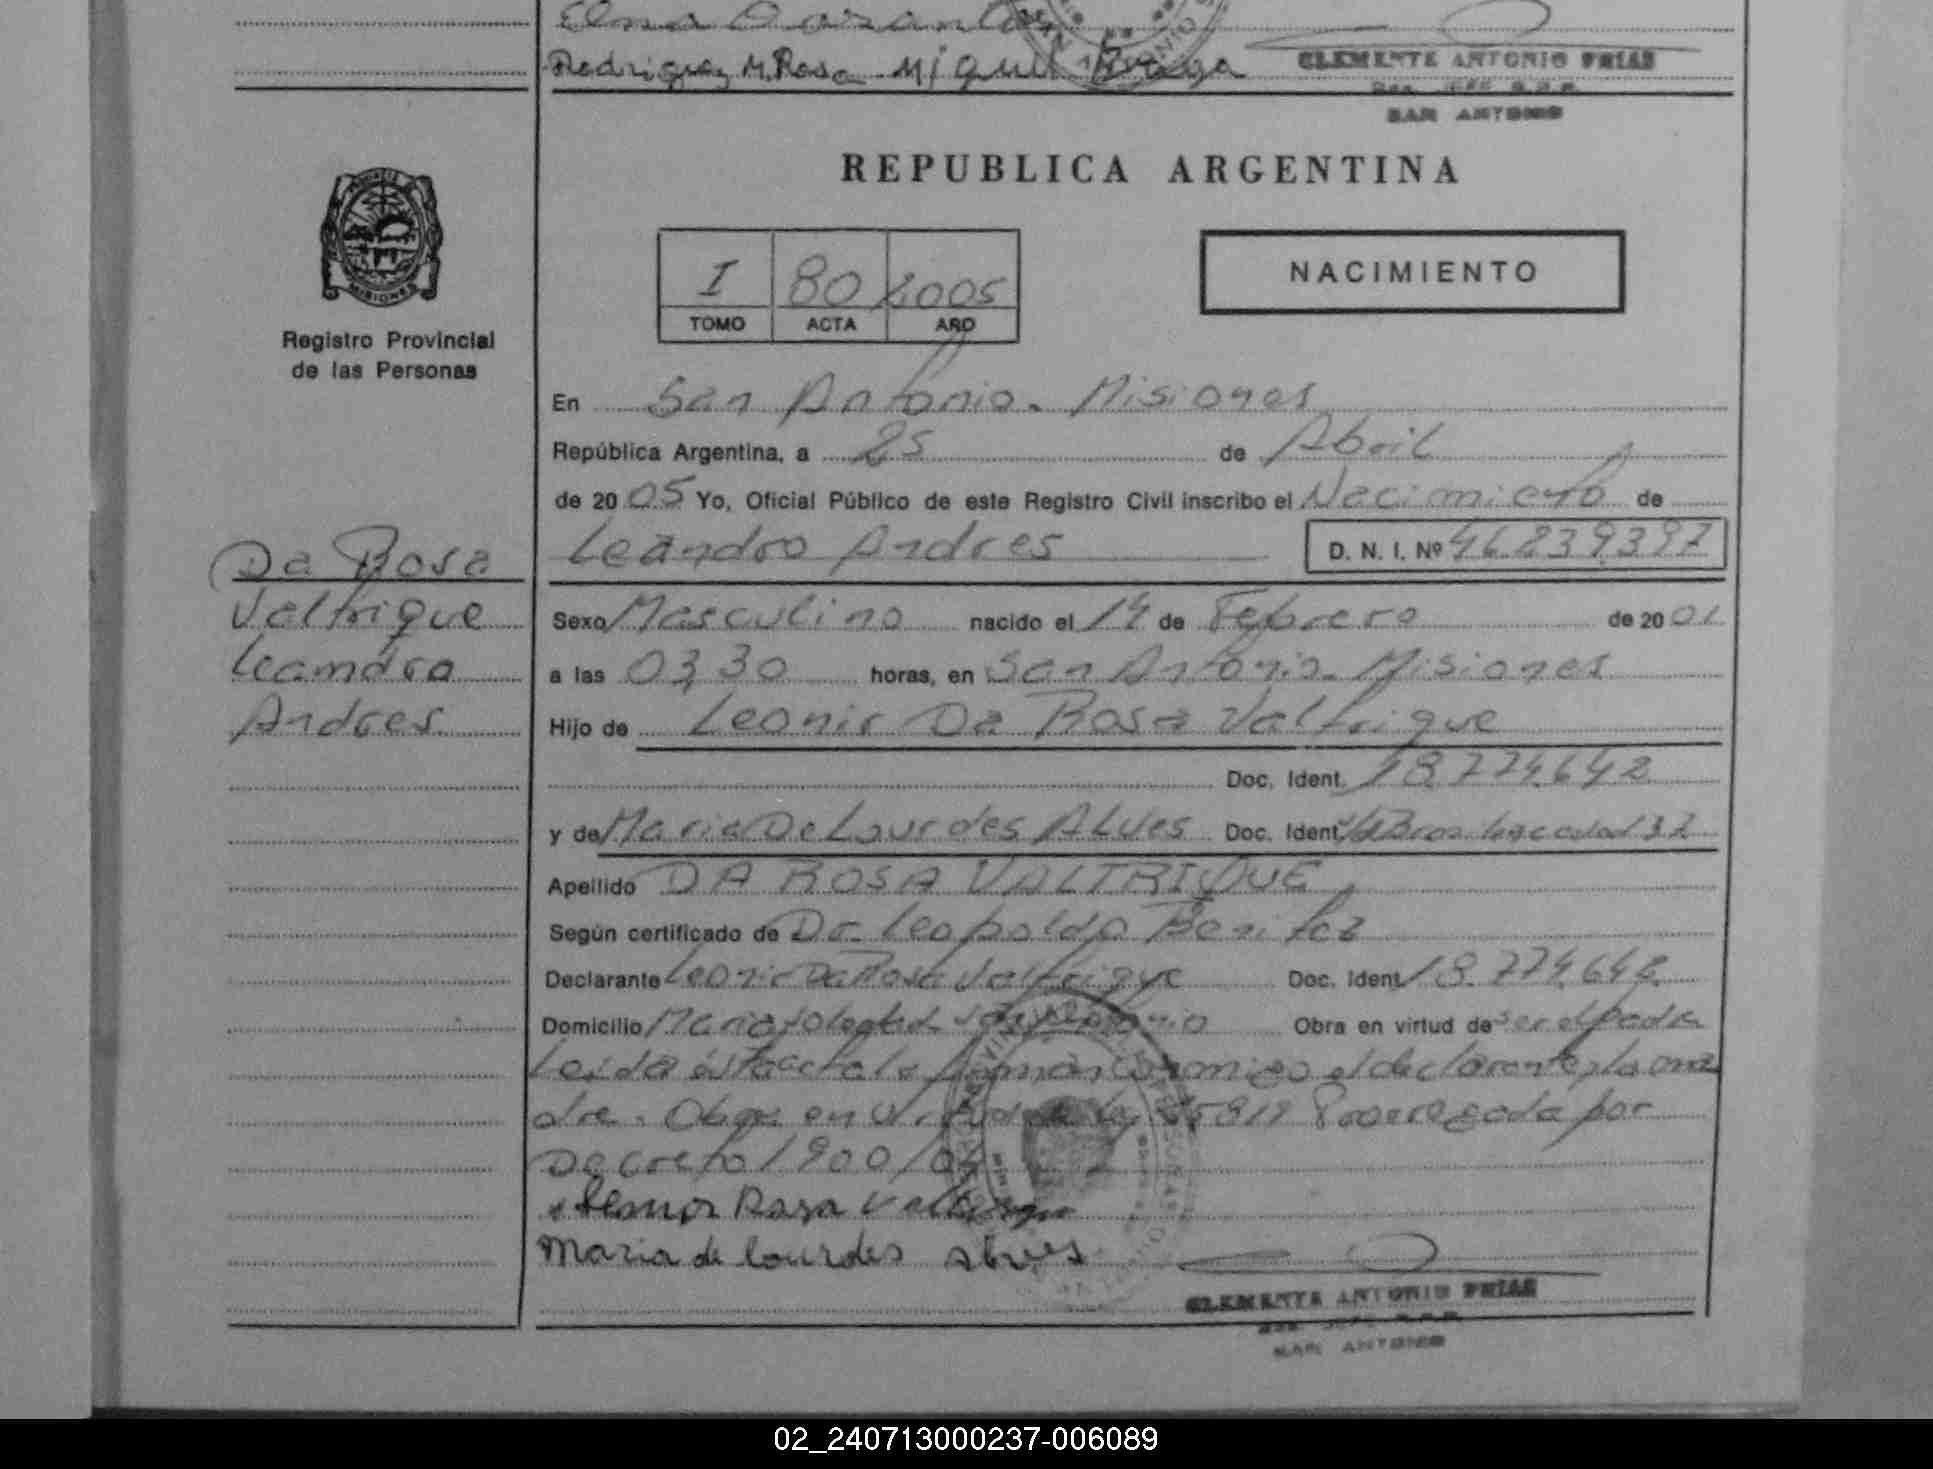 Rodriguez M. Rosa Miguel
CLEMENTE ANTONIO FRIAS
SAN ANTONIO
REPUBLICA ARGENTINA
I 80 2005
TOMO ACTA AÑO
NACIMIENTO
MISIONES
Registro Provincial
de las Personas
En San Antonio - Misiones
República Argentina, a 25 de Abril
de 2005 Yo, Oficial Público de este Registro Civil inscribo el Nacimiento de
Leandro Andres D. N. I. Nº 46239397
Da Rosa
Valtrique
Leandro
Andres
Sexo Masculino nacido el 14 de Febrero de 2001
a las 03,30 horas, en San Antonio - Misiones
Hijo de Leonir Da Rosa Valtrique
Doc. Ident. 18.774.642
y de Maria De Lourdes Alves Doc. Ident.
Apellido DA ROSA VALTRIQUE
Según certificado de Dr. Leopoldo Benitez
Declarante Leonir Da Rosa Valtrique Doc. Ident. 18.774.642
Domicilio Maria Soledad San Antonio Obra en virtud de ser el padre
Leida ésta acta la firman conmigo el declarante y la ma
dre. Obra en Virtud de ley 25819 Prorrogada por
Decreto 1900/04
Rosa
Maria de Lourdes Alves
CLEMENTE ANTONIO FRIAS
SAN ANTONIO
02_240713000237-006089